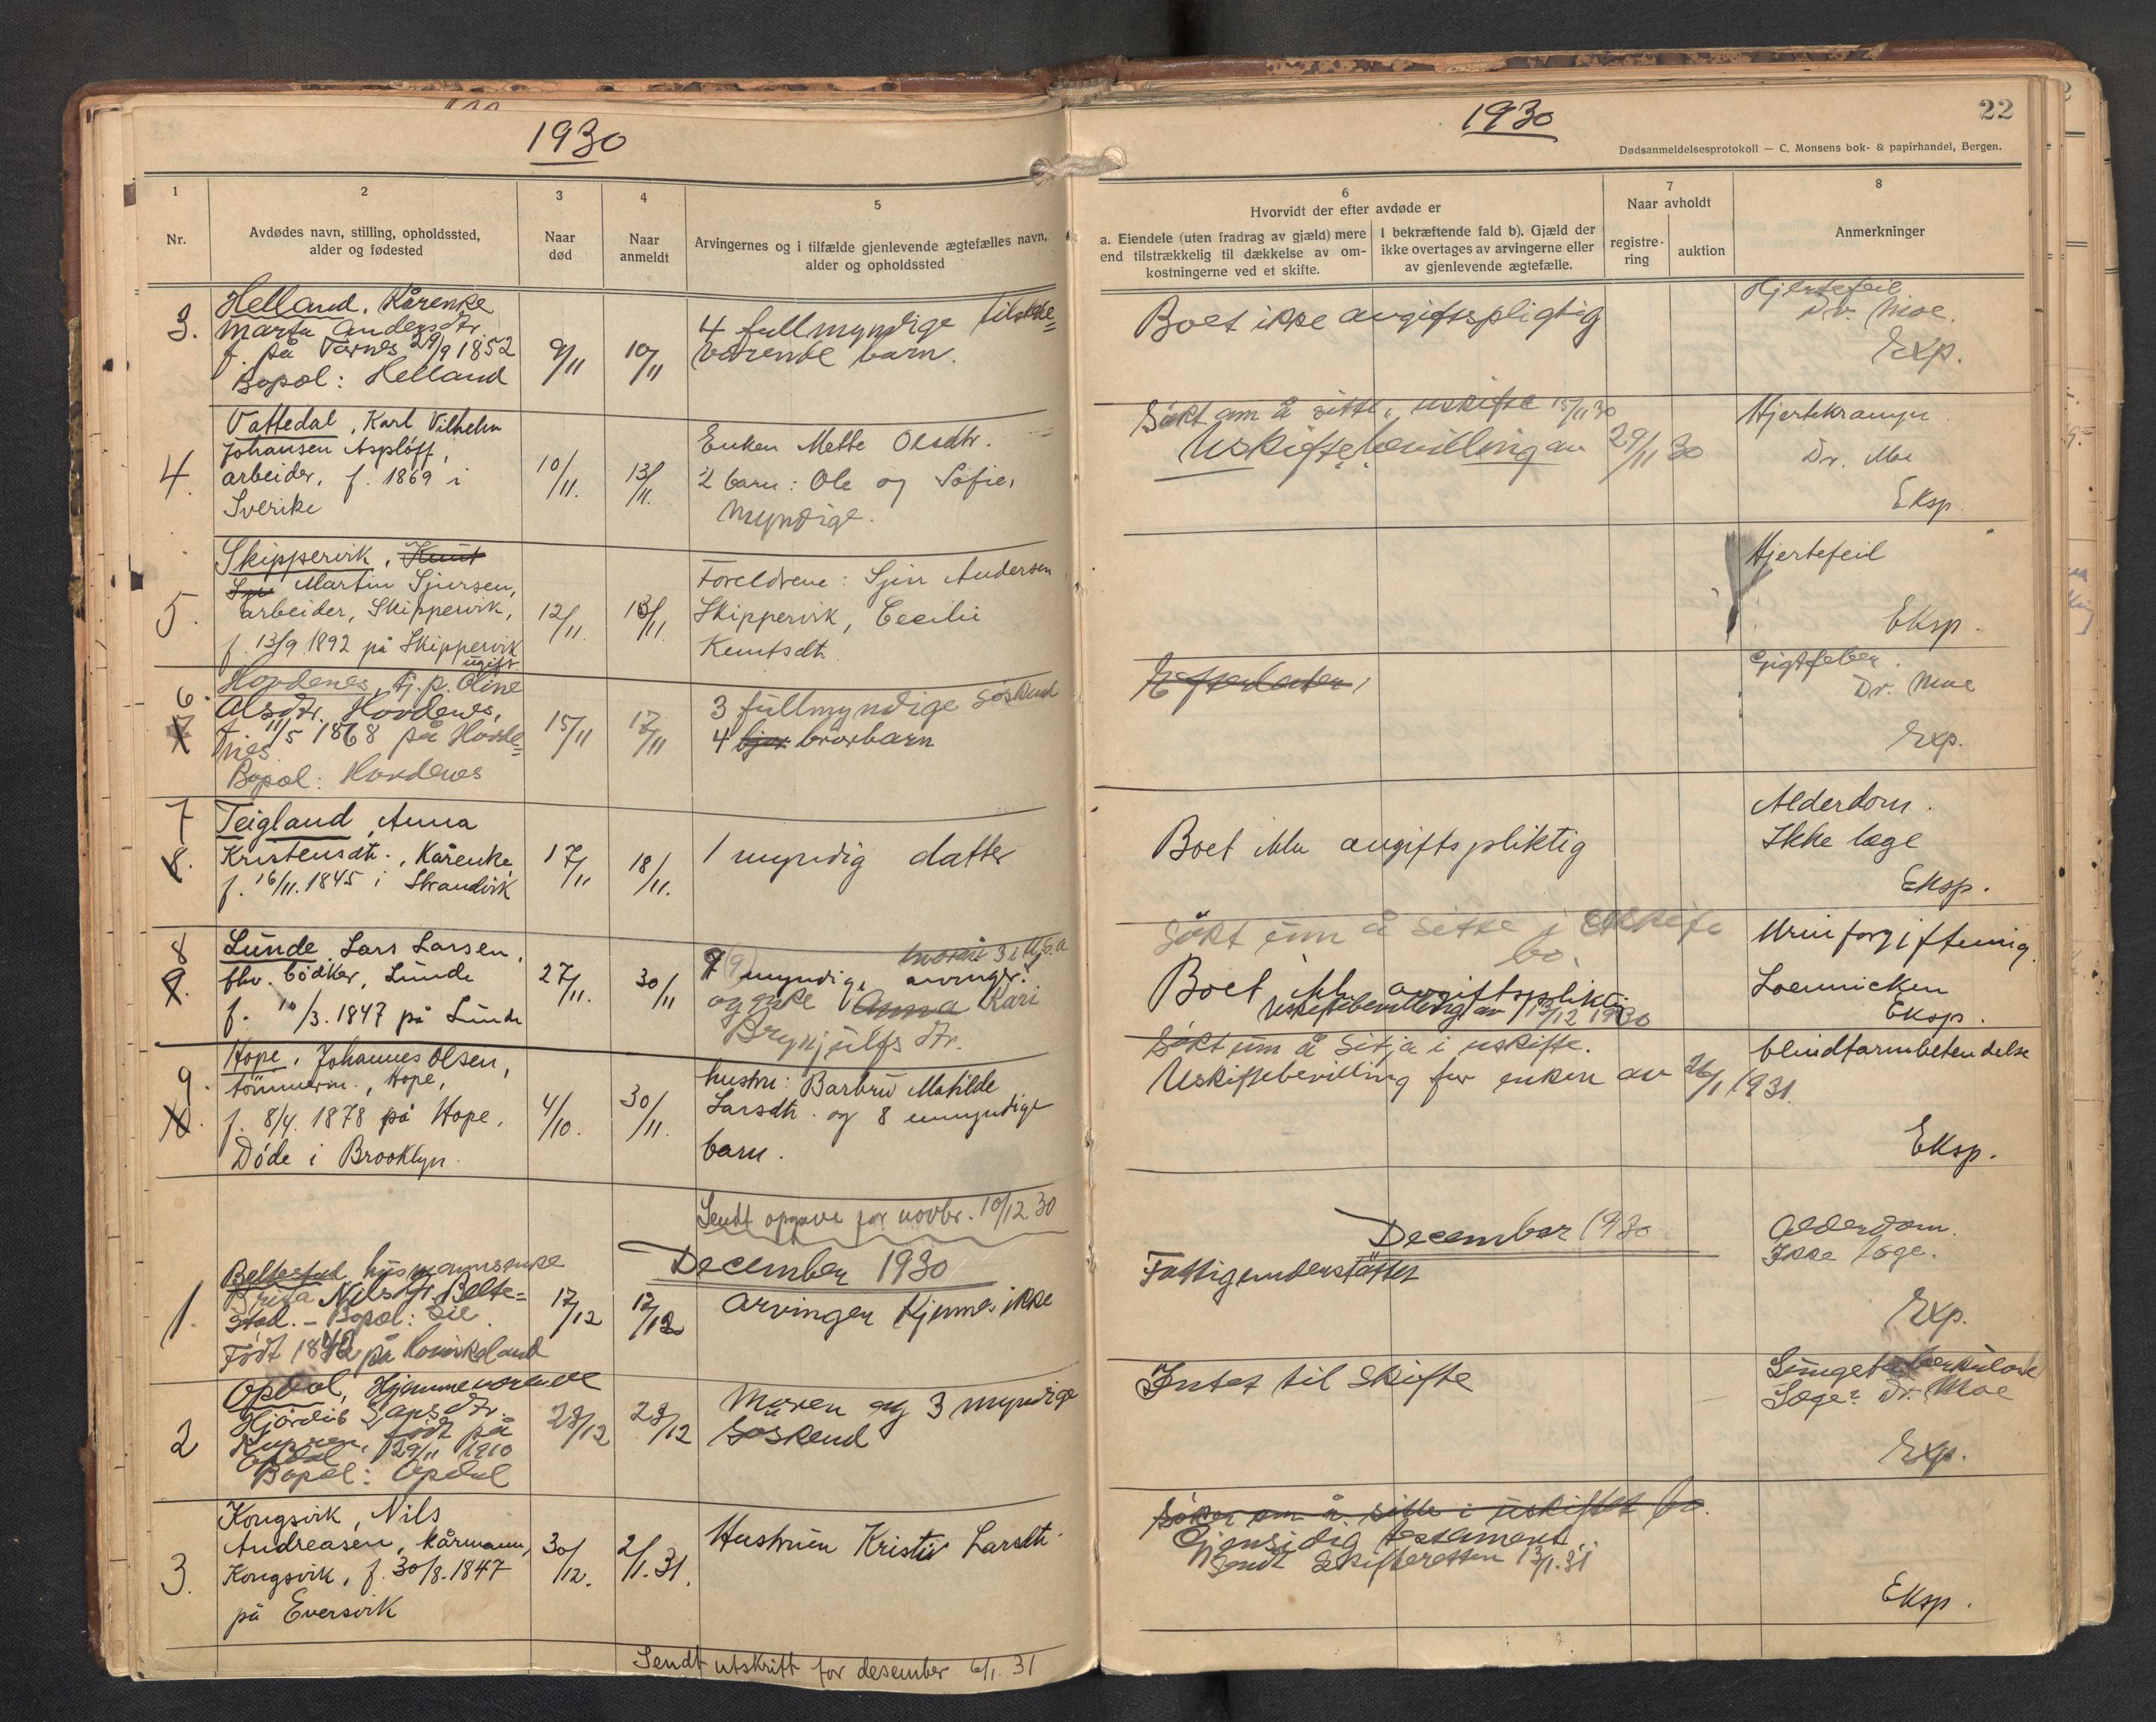 1930
1
2
3
4
5
Nr.
Avdødes navn, stilling, opholdssted,
alder og fødested
Naar
død
Naar
anmeldt
Arvingernes og i tilfælde gjenlevende ægtefælles navn,
alder og opholdssted
3.
Helland, Kårenke
Marta Andersdtr.
f. på Tarnes 29/9 1852
Bopæl: Helland
9/11
10/11
4 fullmyndige tilstede=
værende barn.
4.
Vattedal, Karl Vilhelm
Johansen Asplöff,
arbeider, f. 1869 i
Sverike
10/11.
13/11.
Enken Mette Olsdtr.
2 barn: Ole og Sofie,
myndige.
5.
Skippervik, Knut
Martin Sjursen,
arbeider, Skippervik,
f. 13/9 1892 på Skippervik
ugift
12/11.
13/11.
Foreldrene: Sjur Andersen
Skippervik, Cecilie
Knutsdtr.
6.
7
Hovdenes, tj. p. Oline
Olsdtr. Hovdenes,
f. 11/5 1868 på Hovde=
nes
Bopæl: Hovdenes
15/11
17/11
3 fullmyndige søskend
4 brorbarn
7
8.
Teigland, Anna
Kristensdtr., Kårenke
f. 16/11. 1845 i Strandvik
17/11
18/11.
1 myndig datter
8
9.
Lunde, Lars Larsen,
fhv. bödker, Lunde
f. 10/3. 1847 på Lunde
27/11.
30/11
(9) myndige arvinger.
hvorav 3 i U.S.A
og enke Anna Kari
Brynjulfsdtr.
9.
10.
Hope, Johannes Olsen,
tömmerm., Hope,
f. 8/4. 1878 på Hope.
Döde i Brooklyn.
4/10.
30/11.
hustru: Barbru Matilde
Larsdtr. og 8 umyndige
barn.
Sendt opgave for novbr. 10/12 30
December 1930
1.
Beltestad, husmannsenke
Brita Nilsdtr. Belte=
stad. – Bopæl:
Födt 1842 på
17/12
17/12
Arvinger kjennes ikke
2
Opdal, Hjemmeværende
Hjördis Larsdtr.
födt på
Opdal 29/11 1910
Bopæl: Opdal
28/12
28/12
Moren og 3 myndige
Søskend
3.
Kongsvik, Nils
Andreasen, kårmann,
Kongsvik, f. 30/8. 1847
på Eversvik
30/12.
2/1. 31.
Hustruen Kristi Larsdtr.
Sendt utskrift for desember 6/1. 31
1930
22
Dødsanmeldelsesprotokoll — C. Monsens bok- & papirhandel, Bergen.
6
7
8
Hvorvidt der efter avdøde er
Naar avholdt
a. Eiendele (uten fradrag av gjæld) mere
end tilstrækkelig til dækkelse av om-
kostningerne ved et skifte.
I bekræftende fald b). Gjæld der
ikke overtages av arvingerne eller
av gjenlevende ægtefælle.
registre-
ring
auktion
Anmerkninger
Boet ikke avgiftspligtig
Hjertefeil
Dr. Moe.
Exp.
Søkt om å sitte i uskifte 15/11 30
Uskiftebevilling av 29/11 30
Hjertekrampe.
Dr. Moe
Eksp.
Hjertefeil
Eksp.
Efterlater
Gigtfeber.
Dr. Moe
Exp.
Boet ikke avgiftspliktig
Alderdom.
Ikke læge
Eksp.
Søkt um å sitte i uskifte
bo.
Boet ikke avgiftspliktig
Uskiftebevilling av 13/12 1930
Urinforgiftning.
Loennicken
Eksp.
Søkt um å sitja i uskifte.
Uskiftebevilling for enken av 26/1 1931.
blindtarmbetendelse
Eksp.
December 1930
Fattigunderstöttet
Alderdom.
Ikke læge.
Exp.
Intet til skifte
Lungetuberkulose
Læge: Dr. Moe
Exp.
Søker om å sitte i uskiftet bo.
Gjensidig testament.
Sendt Skifteretten 13/1. 31
Eksp.